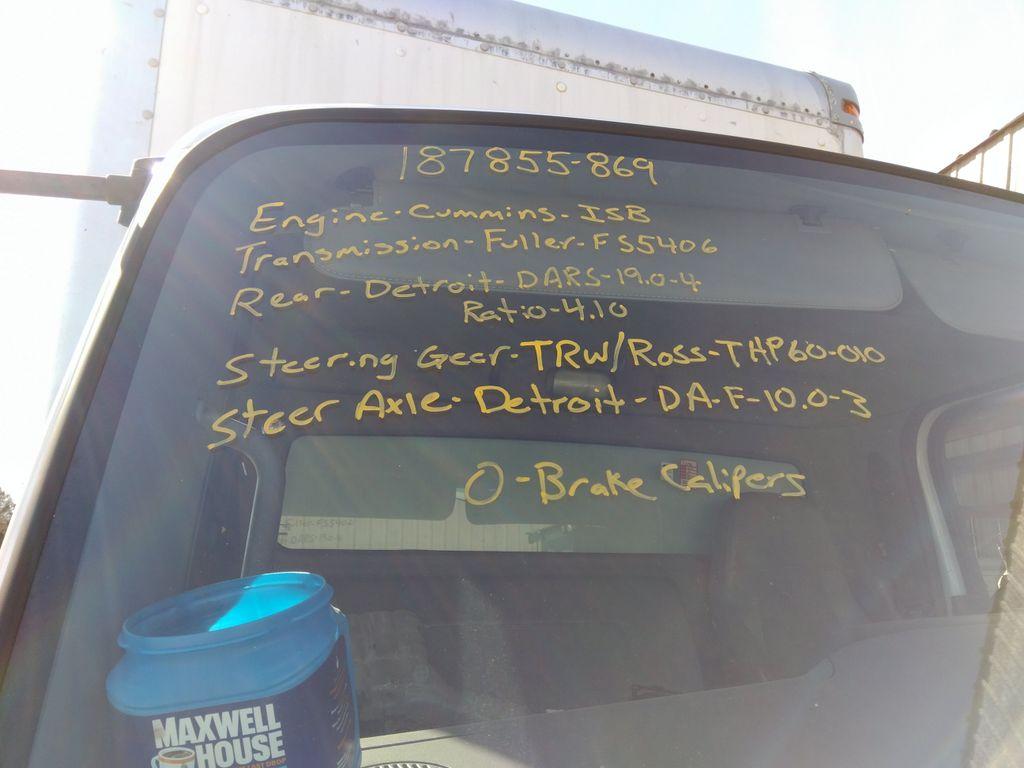 187855-869
Engine-Cummins-ISB
Transmission-Fuller-FS5406
Rear-Detroit-DARS-19.0-4
Ratio-4.10
Steering Gear-TRW/Ross-THP60-010
Steer Axle-Detroit-DA-F-10.0-3
0-Brake Calipers
MAXWELL
HOUSE